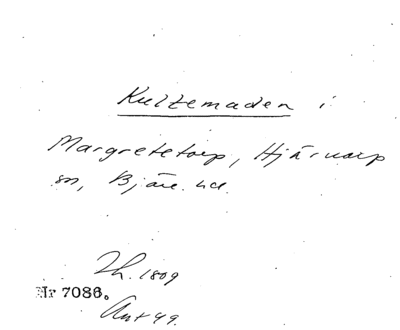 Kultemaden i
Margretetorp, Hjärnarp
sn, Bjäre hd.
Th. 1809
Nr 7086.
Ant 49.